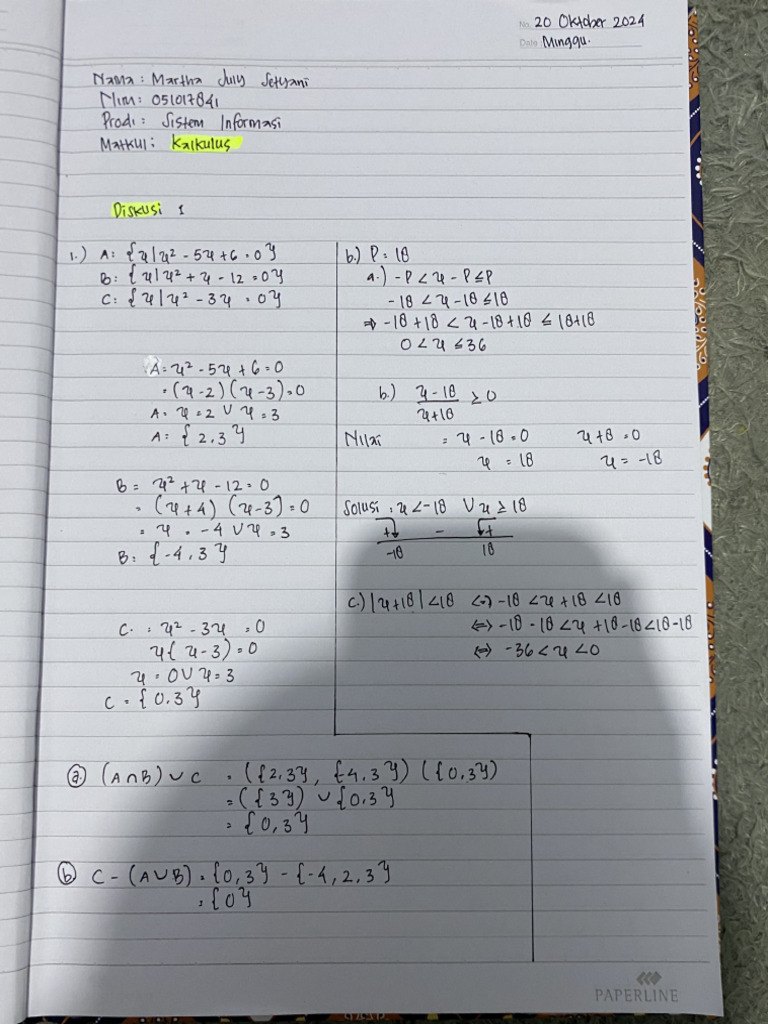 No. 20 Oktober 2024
Date Minggu.
Nama : Martha July Setyani
Nim : 051017841
Prodi : Sistem Informasi
Matkul : Kalkulus
Diskusi 1
1.) A : {x | x² - 5x + 6 = 0}
B : {x | x² + x - 12 = 0}
C : {x | x² - 3x = 0}
A = x² - 5x + 6 = 0
= (x - 2) (x - 3) = 0
A = x = 2 ∪ x = 3
A = {2, 3}
B = x² + x - 12 = 0
= (x + 4) (x - 3) = 0
= x = -4 ∪ x = 3
B : {-4, 3}
C = x² - 3x = 0
x( x - 3) = 0
x = 0 ∪ x = 3
C = {0, 3}
b.) P = 18
a.) -P < x - P ≤ P
-18 < x - 18 ≤ 18
⇒ -18 + 18 < x - 18 + 18 ≤ 18 + 18
0 < x ≤ 36
b.) x - 18 / x + 18 ≥ 0
Nilai = x - 18 = 0 x + 8 = 0
x = 18 x = -18
Solusi : x < -18 ∪ x ≥ 18
+ - +
-18 18
c.) |x + 18| < 18 <=> -18 < x + 18 < 18
<=> -18 - 18 < x + 18 - 18 < 18 - 18
<=> -36 < x < 0
a. (A ∩ B) ∪ C = ({2, 3}, {4, 3}) ({0, 3})
= ({3}) ∪ {0, 3}
= {0, 3}
b. C - (A ∪ B) = {0, 3} - {-4, 2, 3}
= {0}
PAPERLINE